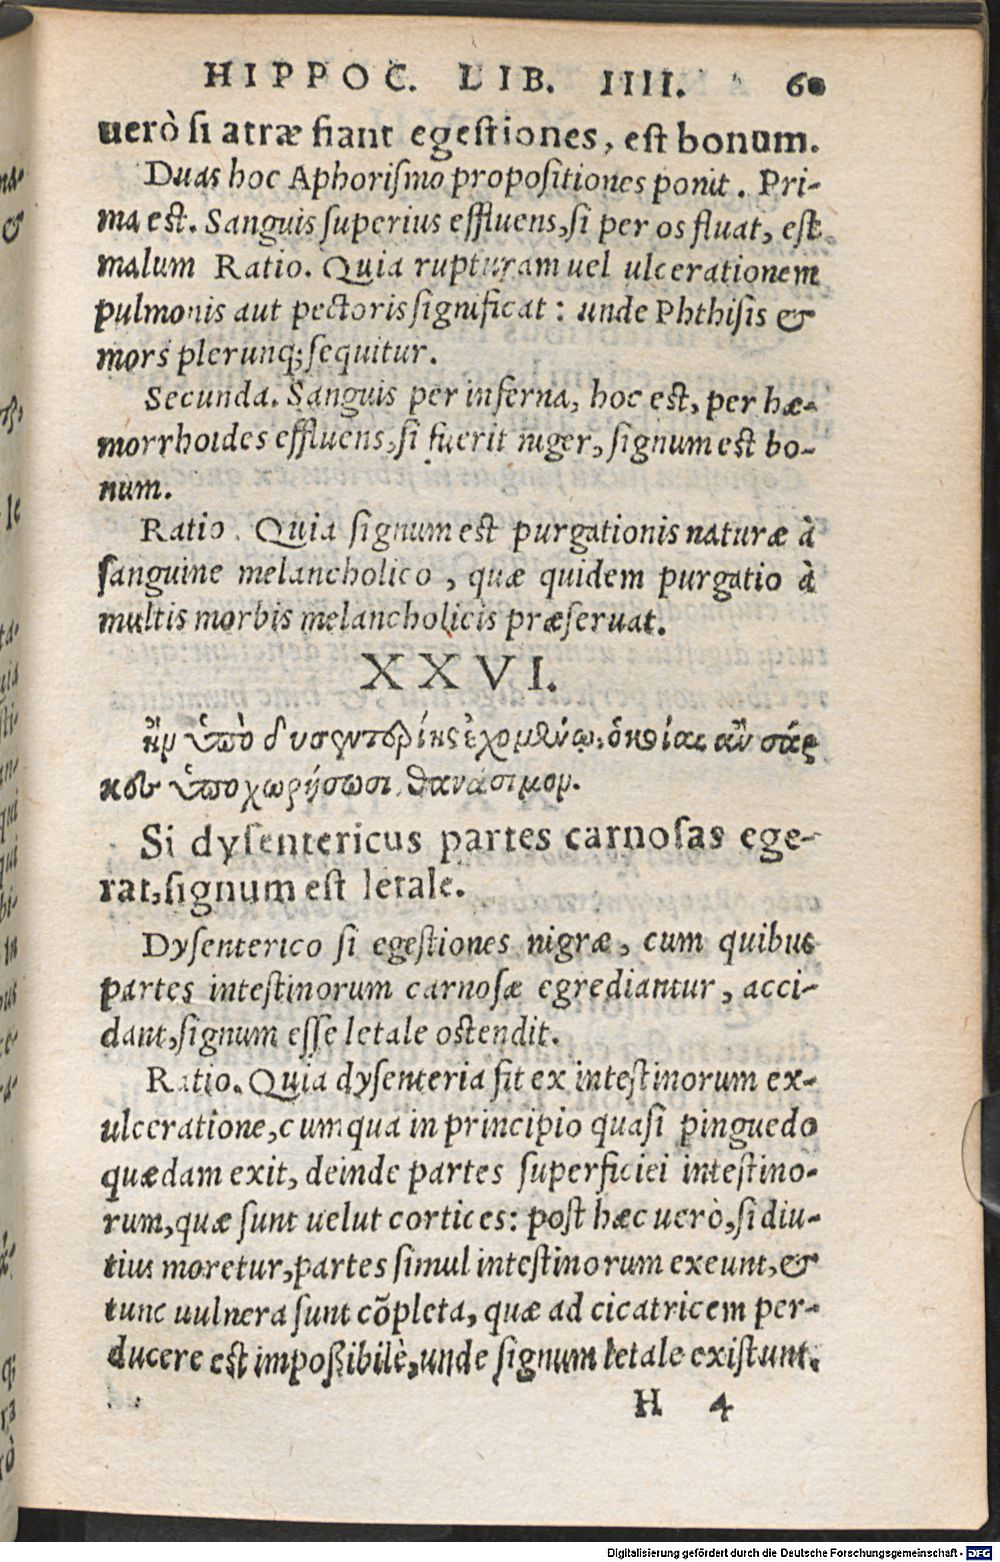 HIPPOC. LIB. IIII. 60
uerò si atræ fiant egestiones, est bonum.
Duas hoc Aphorismo propositiones ponit. Pri-
ma est. Sanguis superius effluens, si per os fluat, est
malum Ratio. Quia rupturam uel ulcerationem
pulmonis aut pectoris significat: unde Phthisis &
mors plerunq; sequitur.
Secunda. Sanguis per inferna, hoc est, per hæ-
morrhoides effluens, si fuerit niger, signum est bo-
num.
Ratio. Quia signum est purgationis naturæ à
sanguine melancholico, quæ quidem purgatio à
multis morbis melancholicis præseruat.
XXVI.
ἢν ὑπὸ δυσεντερίης ἐχομένῳ, ὁκοῖαι ἂν σάρ
κες ὑποχωρήσωσι, θανάσιμον.
Si dysentericus partes carnosas ege-
rat, signum est letale.
Dysenterico si egestiones nigræ, cum quibus
partes intestinorum carnosæ egrediantur, acci-
dant, signum esse letale ostendit.
Ratio. Quia dysenteria fit ex intestinorum ex-
ulceratione, cum qua in principio quasi pinguedo
quædam exit, deinde partes superficiei intestino-
rum, quæ sunt uelut cortices: post hæc uerò, si diu-
tius moretur, partes simul intestinorum exeunt, &
tunc uulnera sunt cōpleta, quæ ad cicatricem per-
ducere est impoßibilè, unde signum letale existunt.
H 4
Digitalisierung gefördert durch die Deutsche Forschungsgemeinschaft - DFG